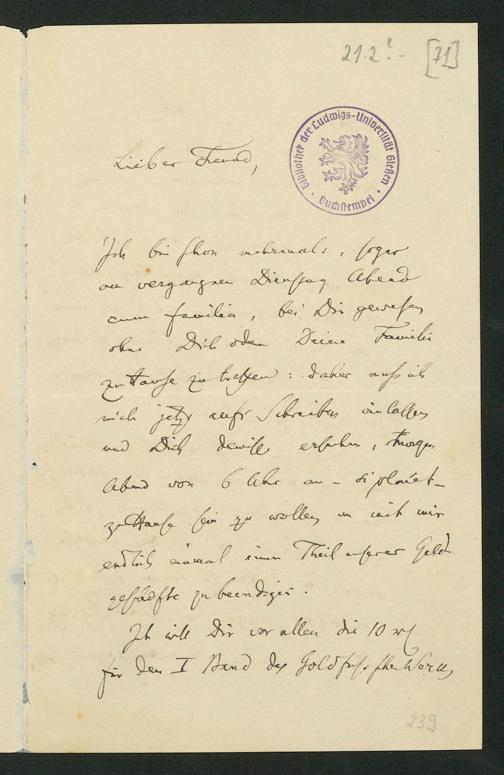 21.2.? - [71]
Bibliothek der Ludwigs-Universität Gießen
Buchstempel
Lieber Freund,
Ich bin schon mehrmals, sogar
am vergangnen Dienstag Abend
cum familia, bei Dir gewesen
ohne Dich oder Deine Familie
zu Hause zu treffen: daher muß ich
mich jetzt aufs Schreiben einlassen
und Dich ersuchen, morgen
Abend von 6 Uhr an - si placet -
zu Hause sein zu wollen um mit mir
endlich einmal einen Theil unserer Geld
geschäfte zu beendigen.
Ich will Dir vor allen die 10
für den I Band des Goldfuss'schen Werks,
239